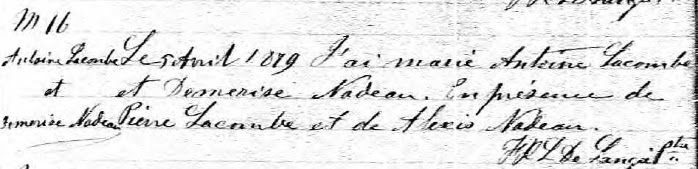 M 16
Antoine Lacombe
et
Domerise Nadeau
Le 5 Avril 1879 J'ai marié Antoine Lacombe
et Domerise Nadeau. En présence de
Pierre Lacombe et de Alexis Nadeau.
ptre